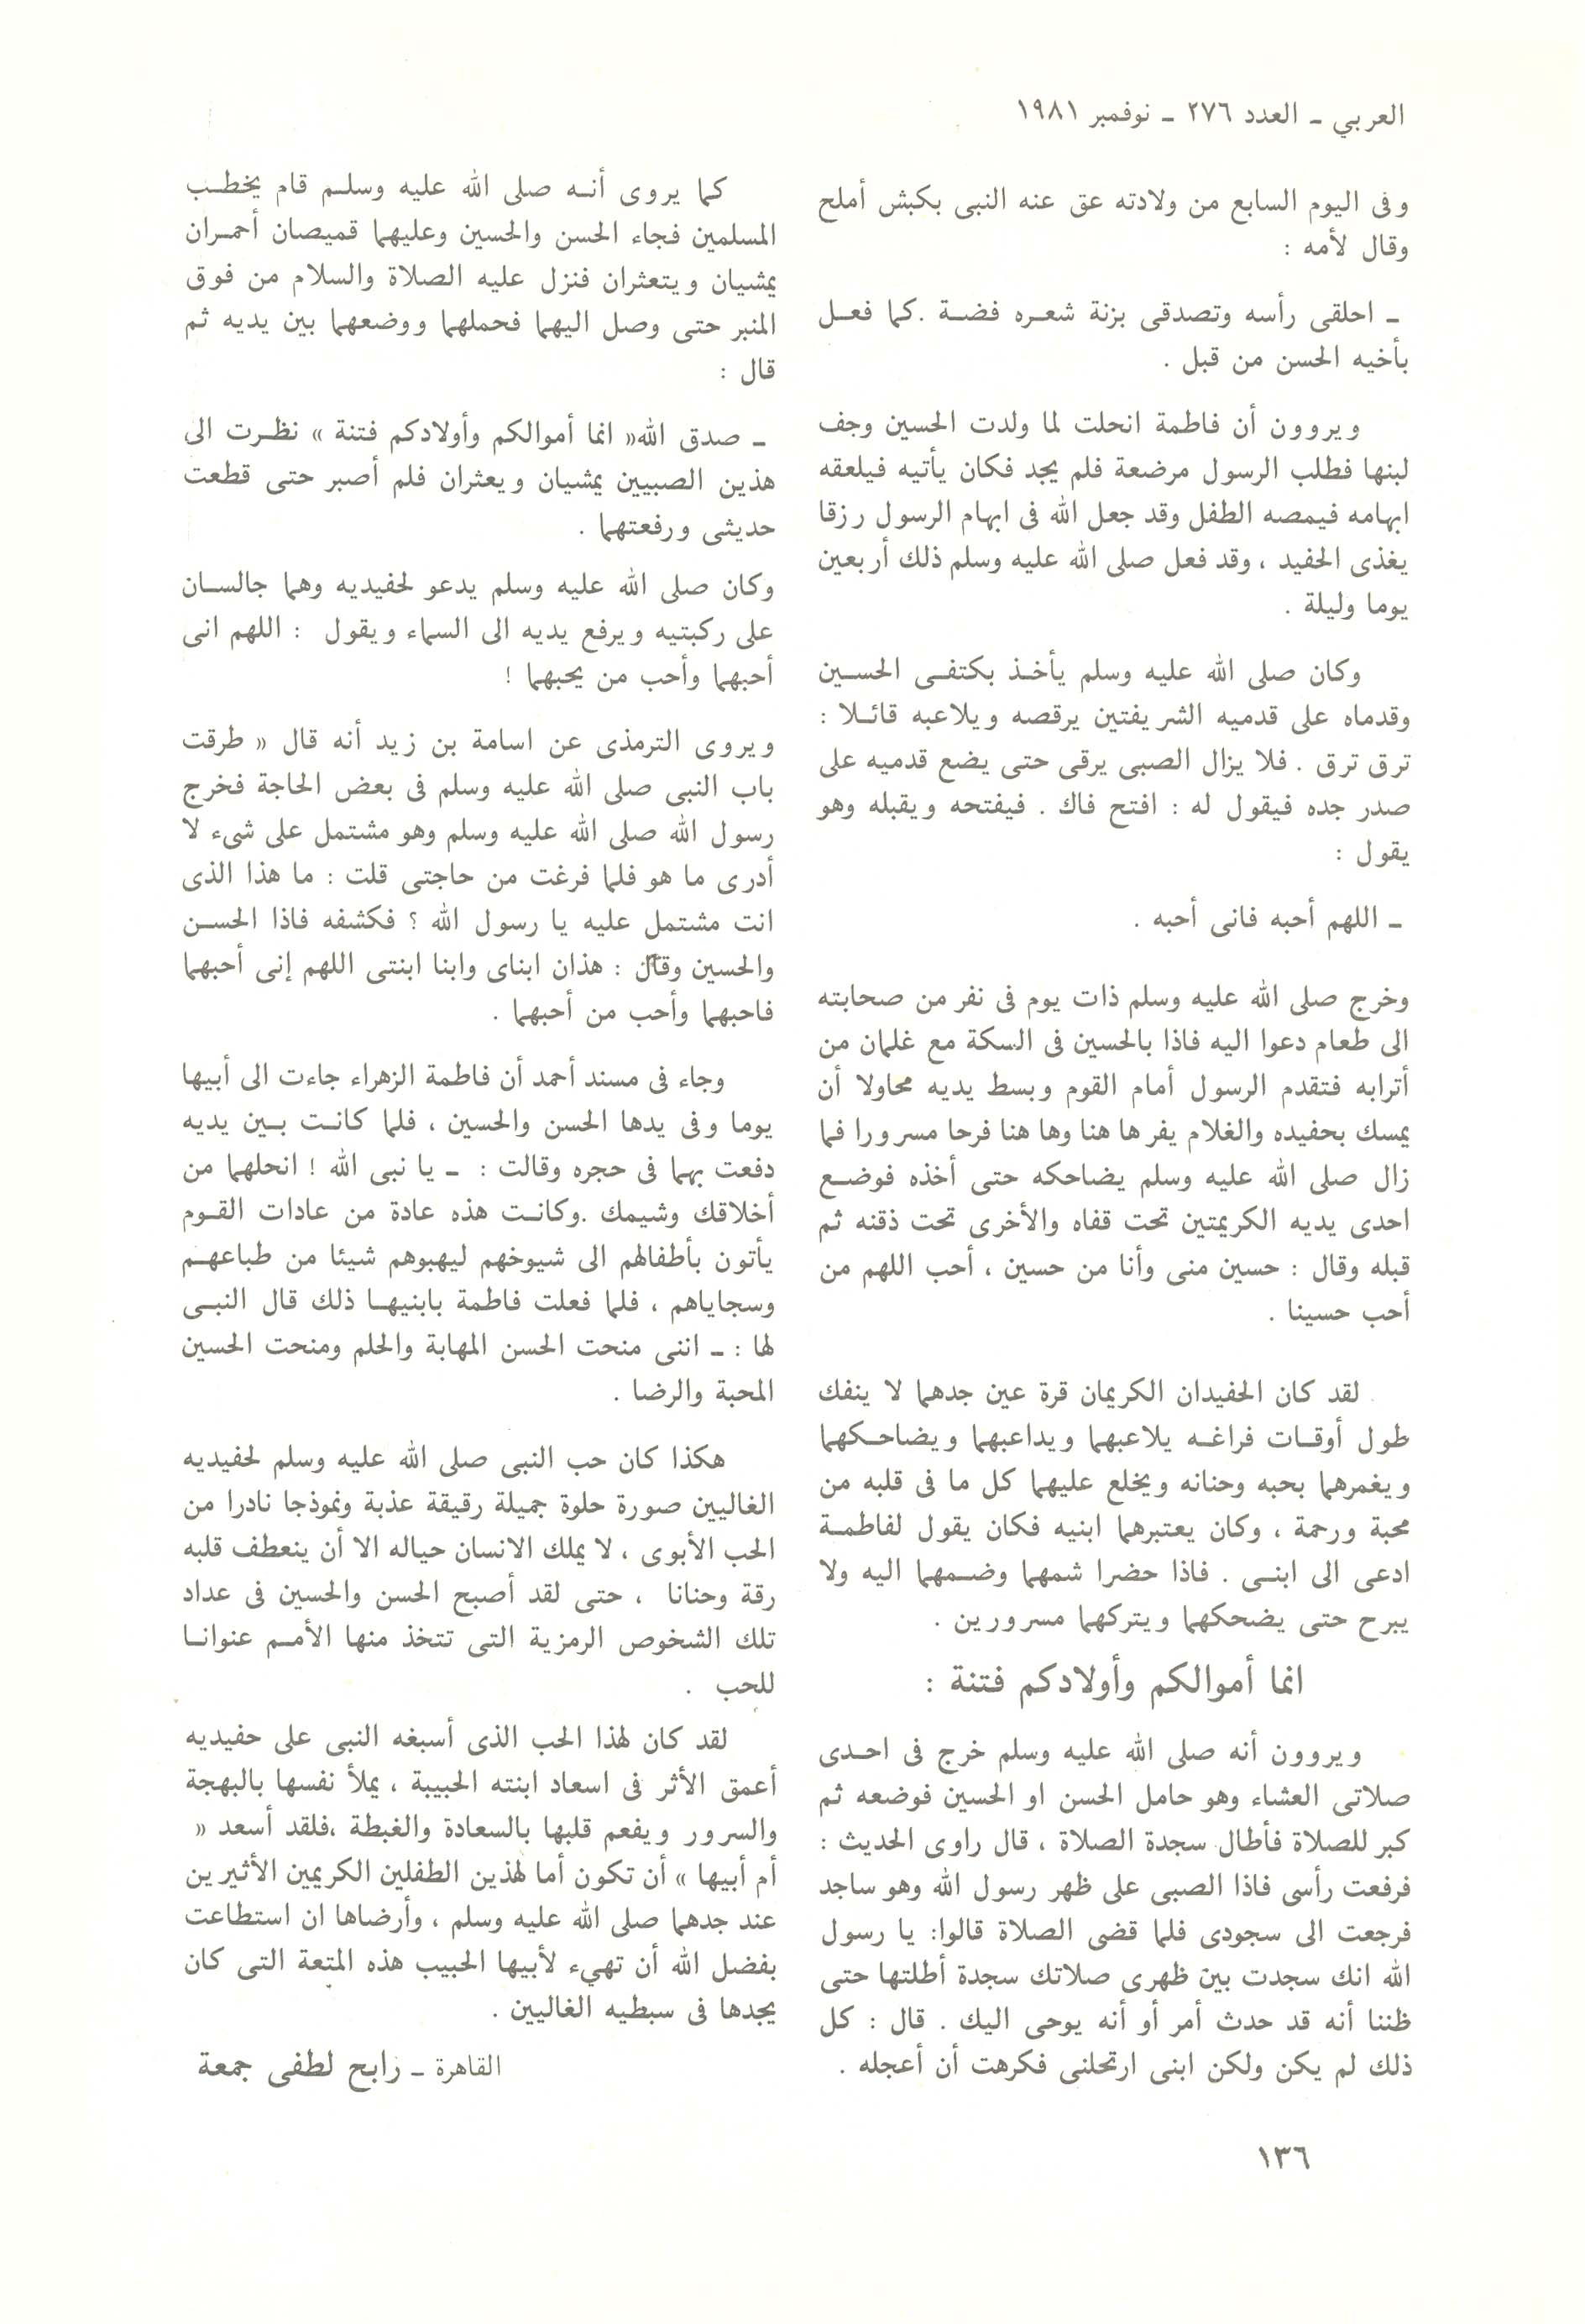 العربي ـ العدد ٢٧٦ ـ نوفمبر ١٩٨١
وفى اليوم السابع من ولادته عق عنه النبى بكبش أملح
وقال لأمه :
ـ احلقى رأسه وتصدقى بزنة شعره فضة . كما فعل
بأخيه الحسن من قبل .
ويروون أن فاطمة انحلت لما ولدت الحسين وجف
لبنها فطلب الرسول مرضعة فلم يجد فكان يأتيه فيلعقه
ابهامه فيمصه الطفل وقد جعل الله فى ابهام الرسول رزقا
يغذى الحفيد ، وقد فعل صلى الله عليه وسلم ذلك أربعين
يوما وليلة .
وكان صلى الله عليه وسلم يأخذ بكتفى الحسين
وقدماه على قدميه الشريفتين يرقصه ويلاعبه قائلا :
ترق ترق . فلا يزال الصبى يرقى حتى يضع قدميه على
صدر جده فيقول له : افتح فاك . فيفتحه ويقبله وهو
يقول :
ـ اللهم أحبه فانى أحبه .
وخرج صلى الله عليه وسلم ذات يوم فى نفر من صحابته
الى طعام دعوا اليه فاذا بالحسين فى السكة مع غلمان من
أترابه فتقدم الرسول أمام القوم وبسط يديه محاولا أن
يمسك بحفيده والغلام يفر ها هنا وها هنا فرحا مسرورا فما
زال صلى الله عليه وسلم يضاحكه حتى أخذه فوضع
احدى يديه الكريمتين تحت قفاه والأخرى تحت ذقنه ثم
قبله وقال : حسين منى وأنا من حسين ، أحب اللهم من
أحب حسينا .
لقد كان الحفيدان الكريمان قرة عين جدهما لا ينفك
طول أوقات فراغه يلاعبهما ويداعبهما ويضاحكهما
ويغمرهما بحبه وحنانه ويخلع عليهما كل ما فى قلبه من
محبة ورحمة ، وكان يعتبرهما ابنيه فكان يقول لفاطمة
ادعى الى ابنى . فاذا حضرا شمهما وضمهما اليه ولا
يبرح حتى يضحكهما ويتركهما مسرورين .
انما أموالكم وأولادكم فتنة :
ويروون أنه صلى الله عليه وسلم خرج فى احدى
صلاتى العشاء وهو حامل الحسن او الحسين فوضعه ثم
كبر للصلاة فأطال سجدة الصلاة ، قال راوى الحديث :
فرفعت رأسى فاذا الصبى على ظهر رسول الله وهو ساجد
فرجعت الى سجودى فلما قضى الصلاة قالوا: يا رسول
الله انك سجدت بين ظهرى صلاتك سجدة أطلتها حتى
ظننا أنه قد حدث أمر أو أنه يوحى اليك . قال : كل
ذلك لم يكن ولكن ابنى ارتحلنى فكرهت أن أعجله .
كما يروى أنه صلى الله عليه وسلم قام يخطب
المسلمين فجاء الحسن والحسين وعليهما قميصان أحمران
يمشيان ويتعثران فنزل عليه الصلاة والسلام من فوق
المنبر حتى وصل اليهما فحملهما ووضعهما بين يديه ثم
قال :
ـ صدق الله« انما أموالكم وأولادكم فتنة » نظرت الى
هذين الصبيين يمشيان ويعثران فلم أصبر حتى قطعت
حديثى ورفعتهما .
وكان صلى الله عليه وسلم يدعو لحفيديه وهما جالسان
على ركبتيه ويرفع يديه الى السماء ويقول : اللهم انى
أحبهما وأحب من يحبهما !
ويروى الترمذى عن اسامة بن زيد أنه قال « طرقت
باب النبى صلى الله عليه وسلم فى بعض الحاجة فخرج
رسول الله صلى الله عليه وسلم وهو مشتمل على شىء لا
أدرى ما هو فلما فرغت من حاجتى قلت : ما هذا الذى
انت مشتمل عليه يا رسول الله ؟ فكشفه فاذا الحسن
والحسين وقال : هذان ابناى وابنا ابنتى اللهم إنى أحبهما
فاحبهما وأحب من أحبهما .
وجاء فى مسند أحمد أن فاطمة الزهراء جاءت الى أبيها
يوما وفى يدها الحسن والحسين ، فلما كانت بين يديه
دفعت بهما فى حجره وقالت : ـ يا نبى الله ! انحلهما من
أخلاقك وشيمك .وكانت هذه عادة من عادات القوم
يأتون بأطفالهم الى شيوخهم ليهبوهم شيئا من طباعهم
وسجاياهم ، فلما فعلت فاطمة بابنيها ذلك قال النبى
لها : ـ اننى منحت الحسن المهابة والحلم ومنحت الحسين
المحبة والرضا .
هكذا كان حب النبى صلى الله عليه وسلم لحفيديه
الغاليين صورة حلوة جميلة رقيقة عذبة ونموذجا نادرا من
الحب الأبوى ، لا يملك الانسان حياله الا أن ينعطف قلبه
رقة وحنانا ، حتى لقد أصبح الحسن والحسين فى عداد
تلك الشخوص الرمزية التى تتخذ منها الأمم عنوانا
للحب .
لقد كان لهذا الحب الذى أسبغه النبى على حفيديه
أعمق الأثر فى اسعاد ابنته الحبيبة ، يملأ نفسها بالبهجة
والسرور ويفعم قلبها بالسعادة والغبطة ،فلقد أسعد «
أم أبيها » أن تكون أما لهذين الطفلين الكريمين الأثيرين
عند جدهما صلى الله عليه وسلم ، وأرضاها ان استطاعت
بفضل الله أن تهيء لأبيها الحبيب هذه المتعة التى كان
يجدها فى سبطيه الغاليين .
القاهرة ـ رابح لطفى جمعة
١٣٦